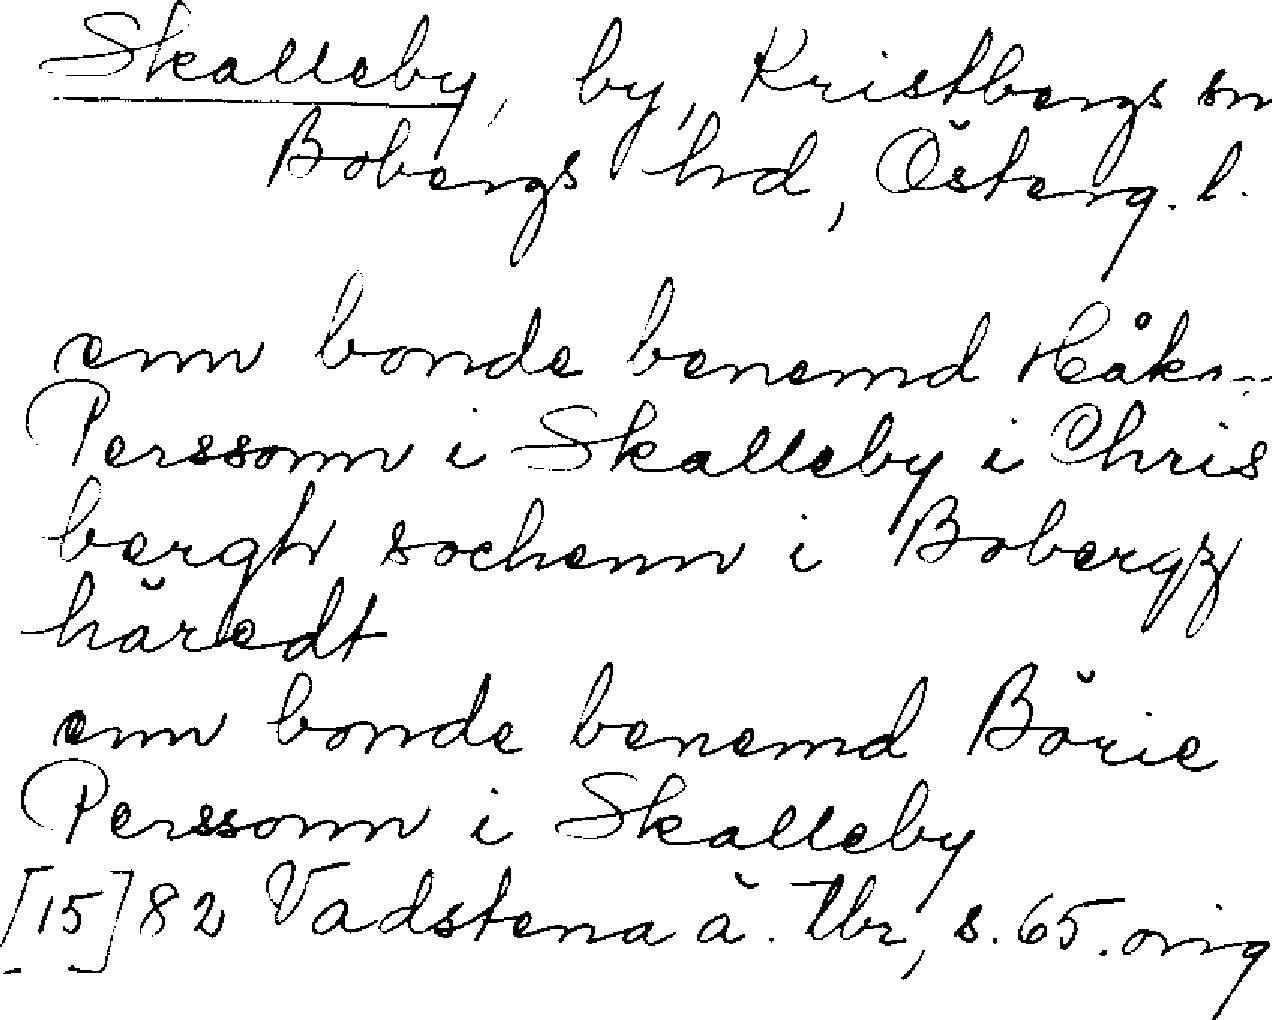 Skalleby, by, Kristbergs sn
Bobergs hd, Österg. l.
enn bonde benemd Håk
Perssonn i Skalleby i Chris
bergh sochenn i Bobergz
häredt
enn bonde benemd Börie
Perssonn i Skalleby
[15]82 Vadstena ä. tbr, s. 65. orig